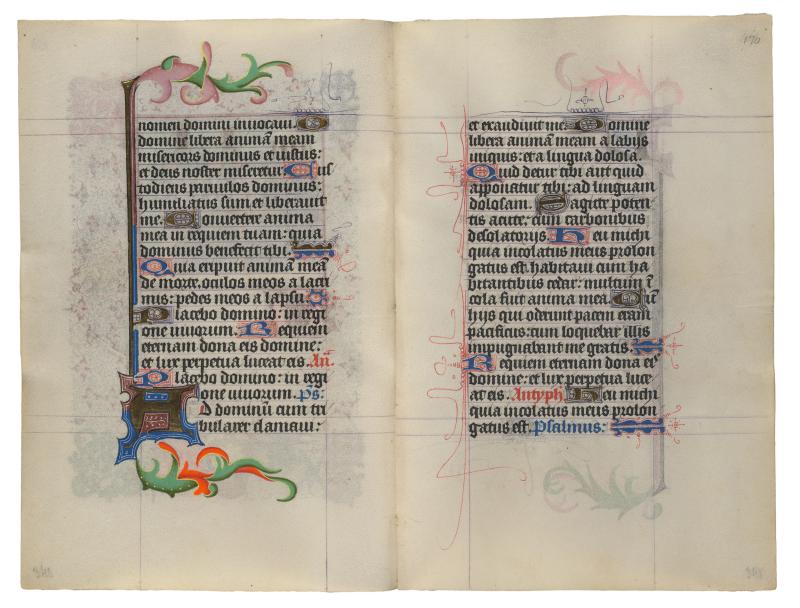 nomen domini invocavi. O
domine libera animā meam
misericors dominus et iustus:
et deus noster miseretur. Cus
todiens parvulos dominus:
humiliatus sum et liberavit
me. Convertere anima
mea in requiem tuam: quia
dominus benefecit tibi.
Quia eripuit animam meā
de morte, oculos meos a lacri
mis: pedes meos a lapsu.
Placebo domino: in regi
one vivorum. Requiem
eternam dona eis domine:
et lux perpetua luceat eis. Añ.
Placebo domino: in regi
one vivorum. Ps:
AD dominū cum tri
bularer clamavi:
170
et exaudivit me. Domine
libera animā meam a labijs
iniquis: et a lingua dolosa.
Quid detur tibi aut quid
apponatur tibi: ad linguam
dolosam. Sagitte poten
tis acute: cum carbonibus
desolatorijs. Heu michi
quia incolatus meus prolon
gatus est. habitavi cum ha
bitantibus cedar: multum ī
cola fuit anima mea. Cū
hijs qui oderunt pacem eram
pacificus: cum loquebar illis
impugnabant me gratis.
Requiem eternam dona eis
domine: et lux perpetua luce
at eis. Antyph. Heu michi
quia incolatus meus prolon
gatus est. Psalmus: